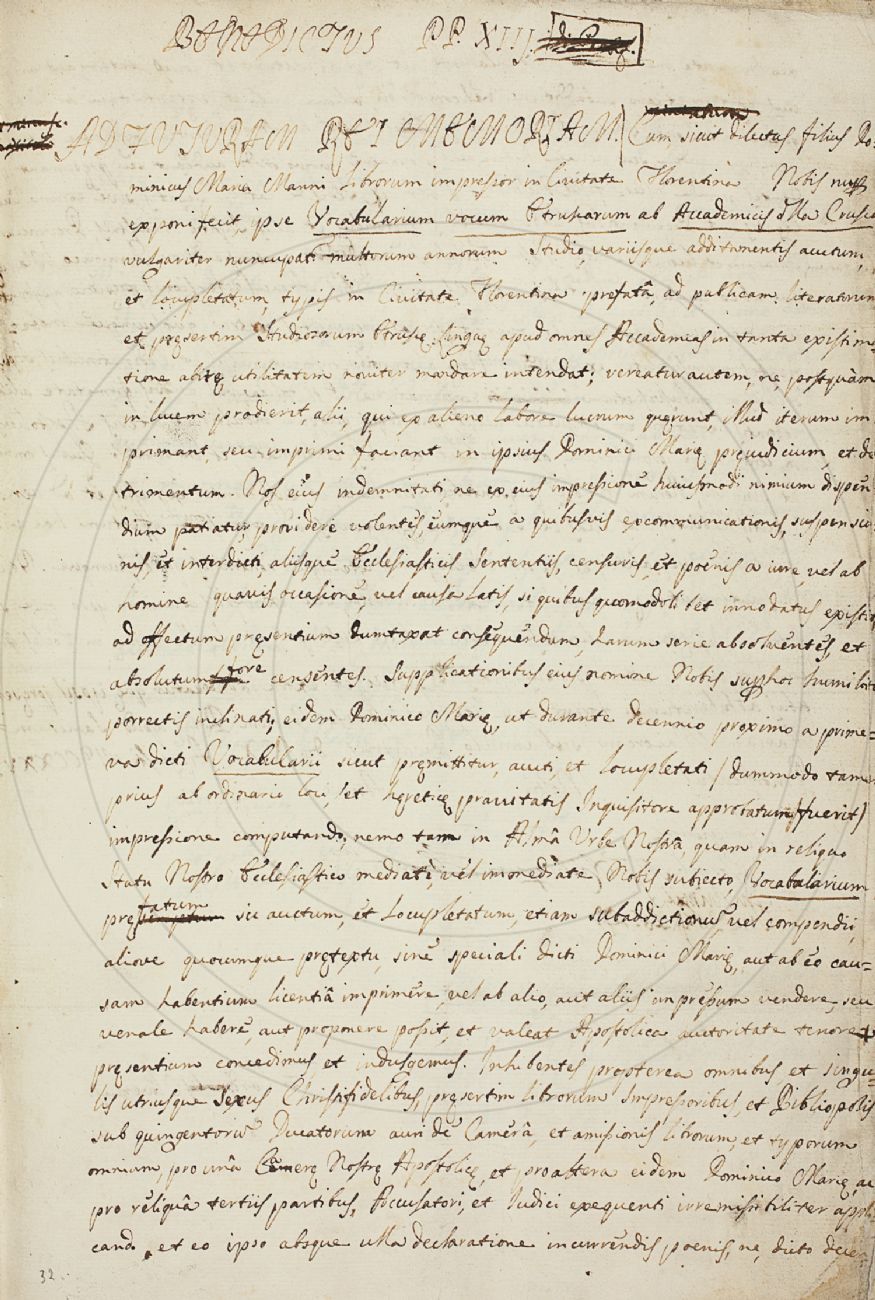 BENEDICTUS PP. XIIJ.
AD FUTURAM REI MEMORIAM. Cum sicut dilectus filius Do=
minicus Maria Manni librorum impressor in Civitate Florentina Nobis nup
exponi fecit, ipse Vocabularium vocum Etruscarum ab Accademicis della Crusca
vulgariter nuncupatis multorum annorum studio, variisque additamentis auctum,
et locupletatum, typis in Civitate Florentina prefatâ, ad publicam literatorum
et presertim studiosorum Etruscę linguę apud omnes Accademias in tanta existima=
tione abitę utilitatem noviter mandare intendat; vereatur autem, ne, postquàm
in lucem prodierit, alii, qui ex alieno labore lucrum querunt, illud iterum im
primant, seu imprimi faciant in ipsius Dominici Marię prejudicium, et de
trimentum. Nos eius indemnitati, ne ex eius impressione huiusmodi nimium dispen
dium patiatur, providere volentes, eumque a quibusvis excommunicationis, suspensio
nis, et interdicti, aliisque Ecclesiasticis sententiis, censuris, et poenis a iure, vel ab
homine quavis occasione, vel causa latis, si quibus quomodolibet innodatus existit,
ad effectum presentium dumtaxat consequendum, harum serie absolventes, et
absolutum fore censentes. Supplicationibus eius nomine Nobis super hoc humilit
porrectis inclinati, eidem Dominico Marię, ut durante decennio proximo a prime=
va dicti Vocabularii sicut premittitur, aucti, et locupletati / dummodo tame
prius ab ordinario loci, et hęreticę pravitatis Inquisitore approbatum fuerit /
impressione computando, nemo tam in Almâ Urbe Nostrâ, quam in reliquo
Statu Nostro Ecclesiastico mediatè, vel immediate Nobis subiecto, Vocabularium
prefatum sic auctum, et locupletatum, etiam sub additionum, vel compendii,
aliove quocumque pretextu, sine speciali dicti Dominici Marię, aut ab eo cau=
sam habentium licentiâ imprimere, vel ab alio, aut aliis impressum vendere, seu
venale habere, aut proponere possit, et valeat Apostolica auctoritate tenore
presentium concedimus et indulgemus. Inhibentes propterea omnibus, et singu=
lis utriusque sexus Christifidelibus, presertim librorum Impressoribus, et Bibliopolis
sub quingentorum Ducatorum auri de Camerâ, et amissionis librorum, et typorum
omnium, pro unâ Camerę Nostrę Apostolicę, et pro altera eidem Dominico Marię, ac
pro reliquâ tertiis partibus, Accusatori, et Iudici exequenti irremissibiliter appli
cando, et eo ipso absque ulla declaratione incurrendis poenis, ne, dicto decen
32